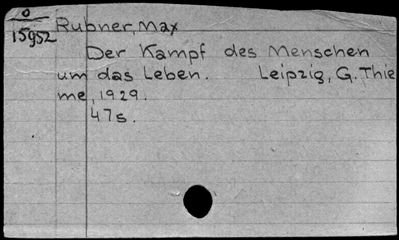 0
15952
Rubner, Max
Der Kampf des Menschen
um das Leben. Leipzig, G. Thie
me, 1929.
47s.